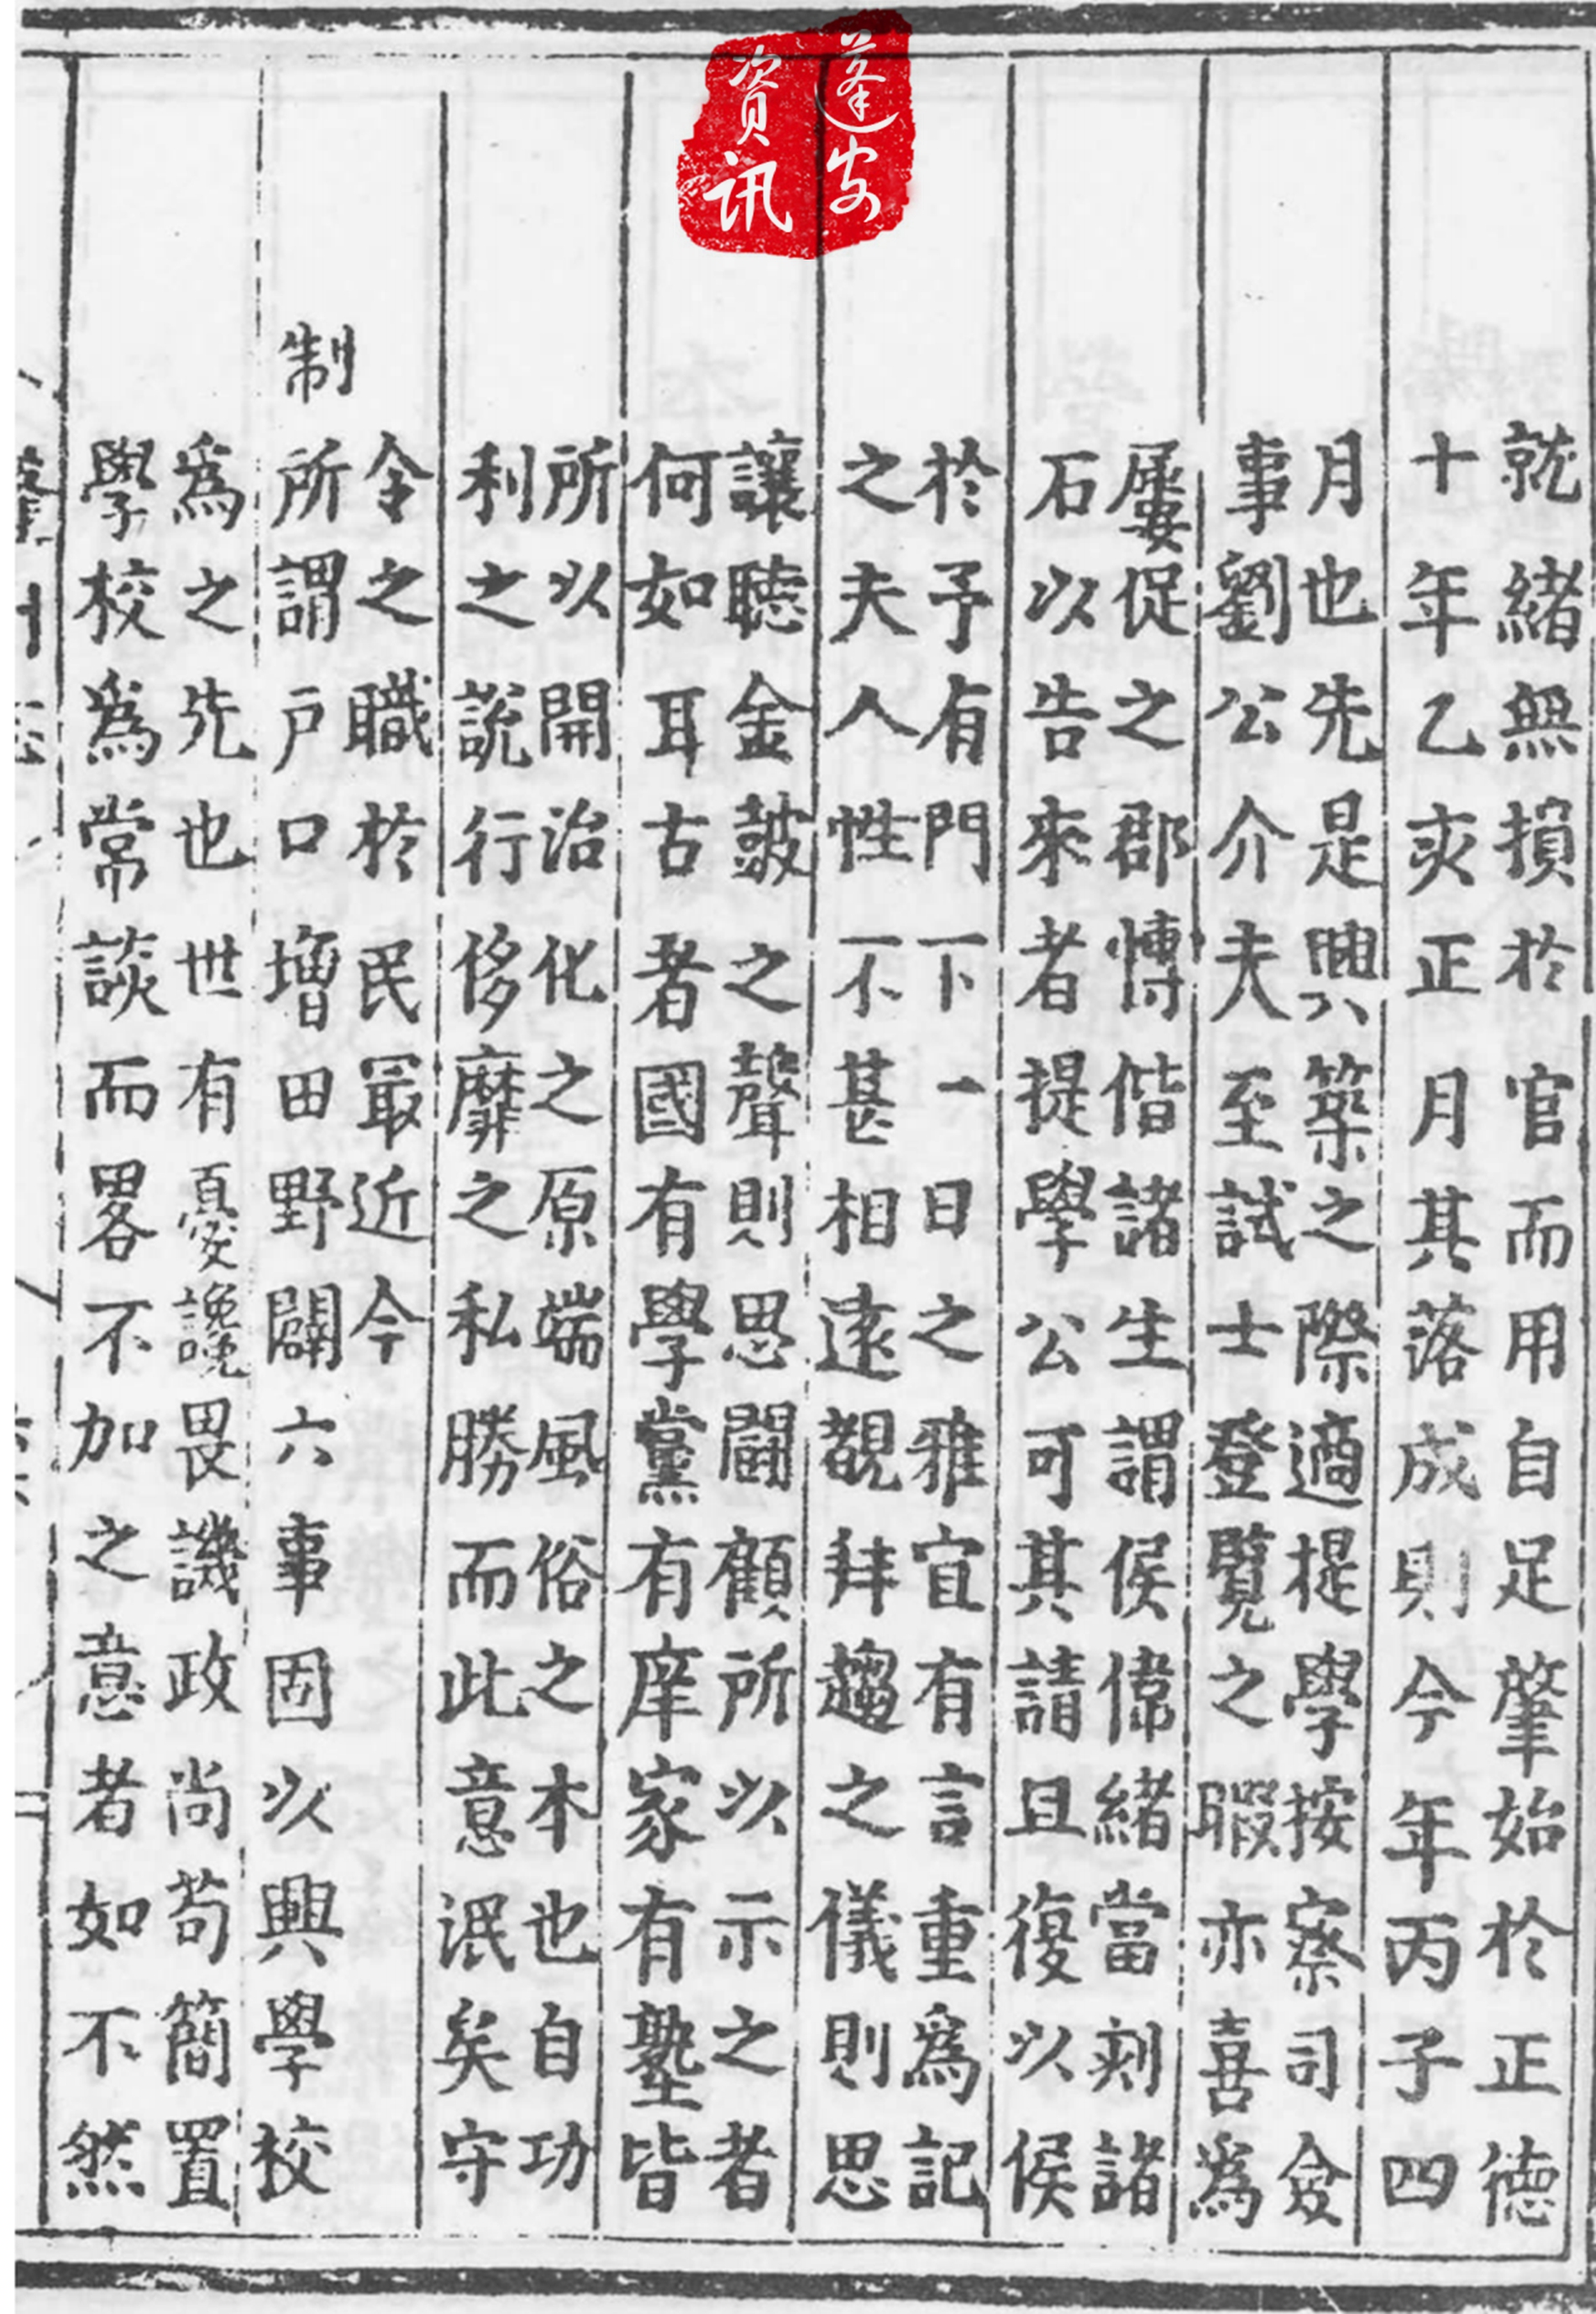 蓬安
資讯
就緒無損於官而用自足肇始於正德
十年乙亥正月其落成則今年丙子四
月也先是興築之際適提學按察司僉
事劉公介夫至試士登覽之暇亦喜爲
屢促之郡博偕諸生謂侯偉緒當刻諸
石以告來者提學公可其請且復以侯
於予有門下一日之雅宜有言重爲記
之夫人性不甚相遠覩拜趨之儀則思
讓聽金皷之聲則思鬪顧所以示之者
何如耳古者國有學黨有庠家有塾皆
所以開治化之原端風俗之本也自功
利之說行侈靡之私勝而此意泯矣守
令之職於民最近今
制
所謂戸口增田野闢六事固以興學校
爲之先也世有憂讒畏譏政尚苟簡置
學校爲常談而畧不加之意者如不然